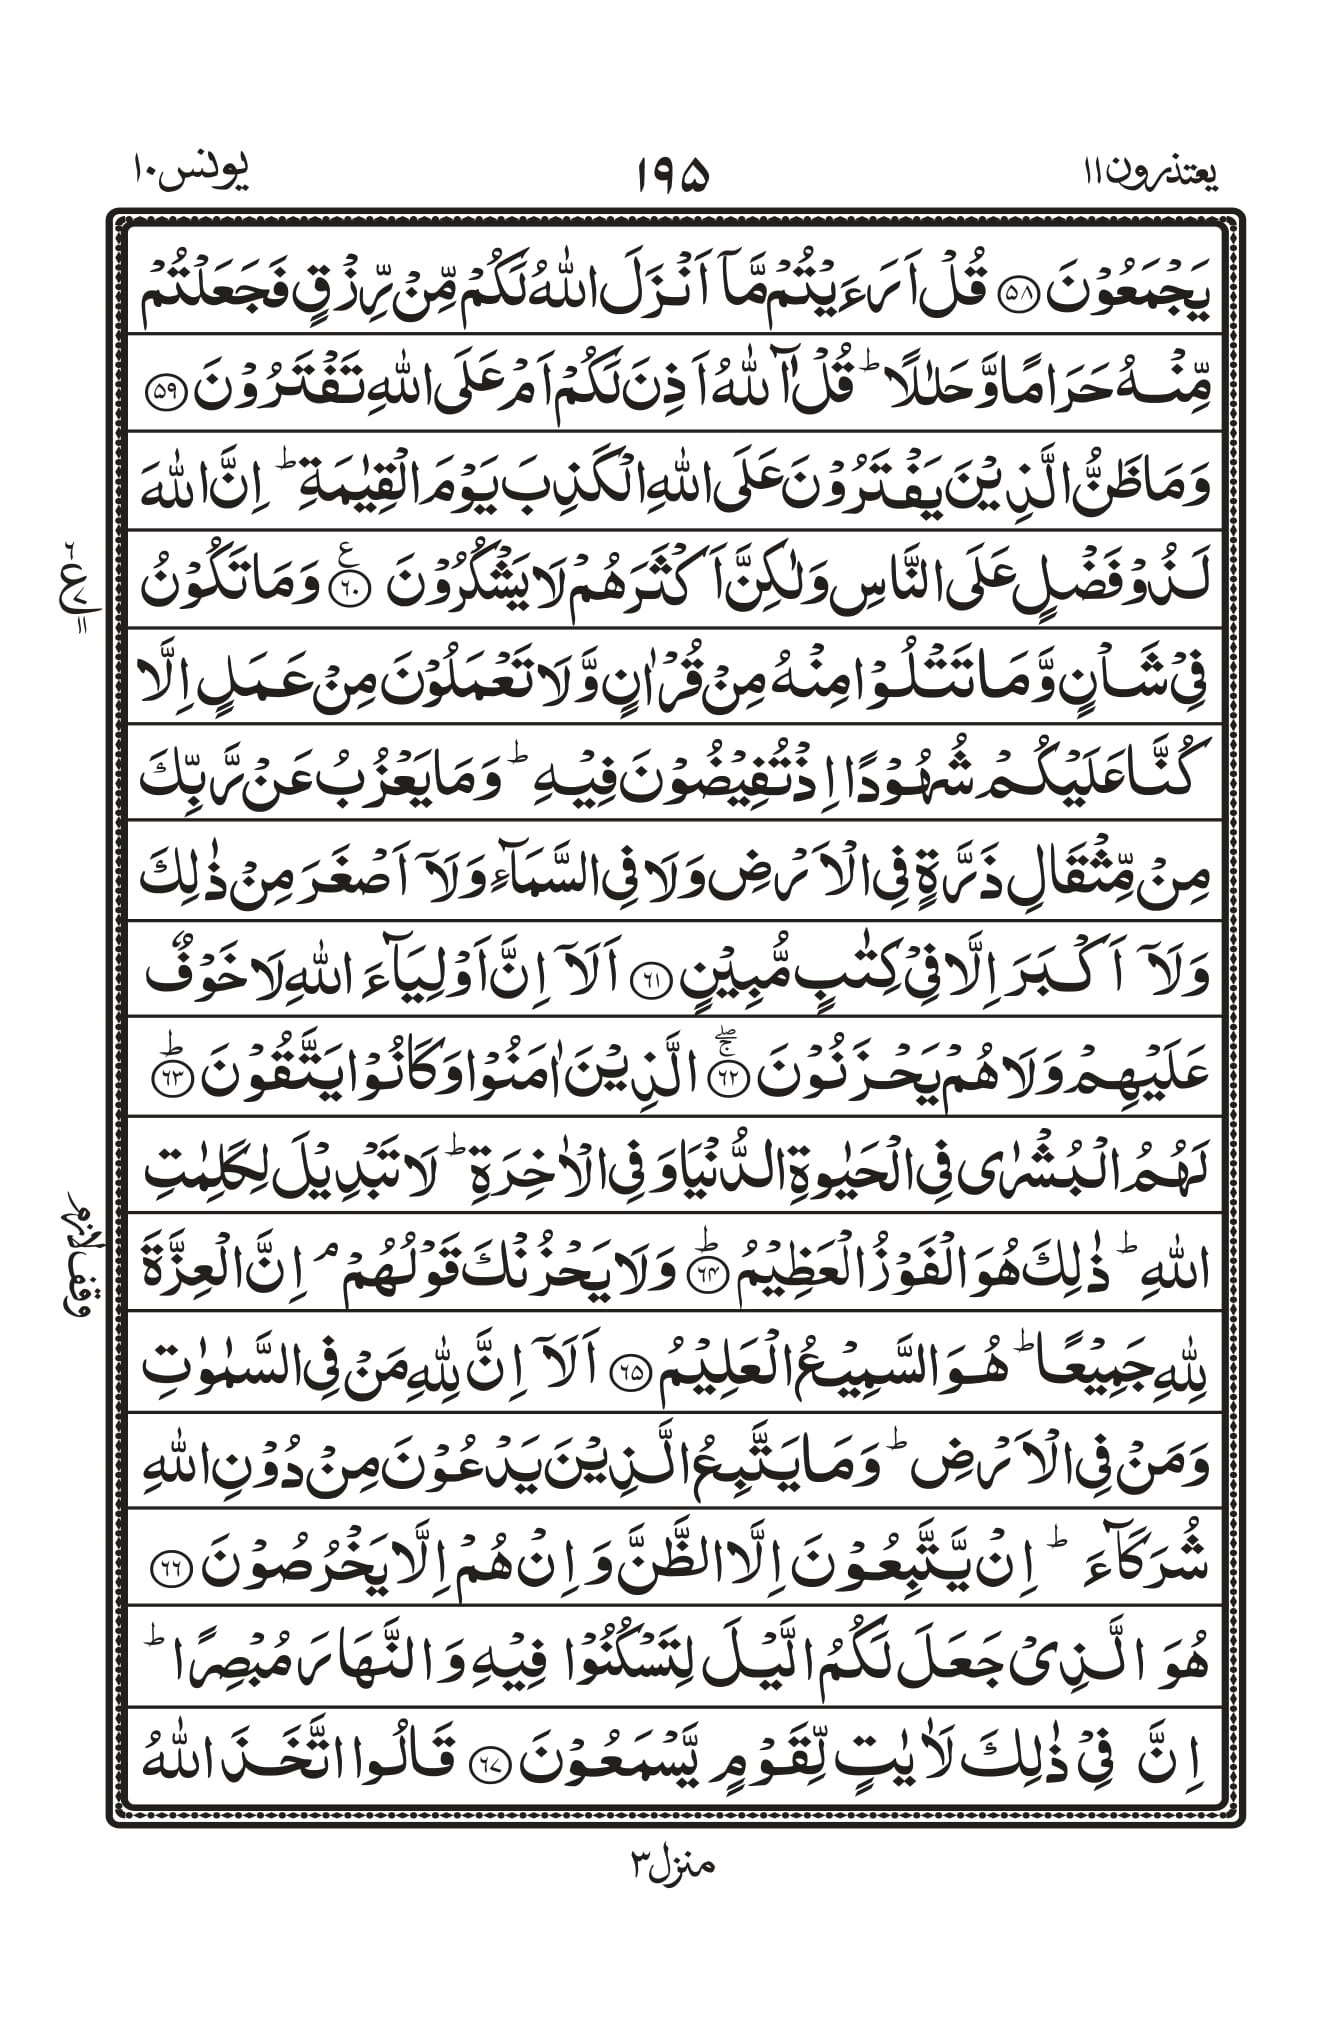 يعتذرون١١
١٩٥
يونس١٠
يَجْمَعُوْنَ ۝٥٨ قُلْ اَرَءَيْتُمْ مَّآ اَنْزَلَ اللّٰهُ لَكُمْ مِّنْ رِّزْقٍ فَجَعَلْتُمْ
مِّنْهُ حَرَامًا وَّحَلٰلًا ؕ قُلْ آٰللّٰهُ اَذِنَ لَكُمْ اَمْ عَلَى اللّٰهِ تَفْتَرُوْنَ ۝٥٩
وَمَا ظَنُّ الَّذِيْنَ يَفْتَرُوْنَ عَلَى اللّٰهِ الْكَذِبَ يَوْمَ الْقِيٰمَةِ ؕ اِنَّ اللّٰهَ
لَذُوْ فَضْلٍ عَلَى النَّاسِ وَلٰكِنَّ اَكْثَرَهُمْ لَا يَشْكُرُوْنَ ۝٦٠ ع وَمَا تَكُوْنُ
٦
ع
٧
١١
فِيْ شَاْنٍ وَّمَا تَتْلُوْا مِنْهُ مِنْ قُرْاٰنٍ وَّلَا تَعْمَلُوْنَ مِنْ عَمَلٍ اِلَّا
كُنَّا عَلَيْكُمْ شُهُوْدًا اِذْ تُفِيْضُوْنَ فِيْهِ ؕ وَمَا يَعْزُبُ عَنْ رَّبِّكَ
مِنْ مِّثْقَالِ ذَرَّةٍ فِي الْاَرْضِ وَلَا فِي السَّمَآءِ وَلَآ اَصْغَرَ مِنْ ذٰلِكَ
وَلَآ اَكْبَرَ اِلَّا فِيْ كِتٰبٍ مُّبِيْنٍ ۝٦١ اَلَآ اِنَّ اَوْلِيَآءَ اللّٰهِ لَا خَوْفٌ
عَلَيْهِمْ وَلَا هُمْ يَحْزَنُوْنَ ۝٦٢ ۚۖ الَّذِيْنَ اٰمَنُوْا وَكَانُوْا يَتَّقُوْنَ ۝٦٣ ؕ
لَهُمُ الْبُشْرٰى فِي الْحَيٰوةِ الدُّنْيَا وَفِي الْاٰخِرَةِ ؕ لَا تَبْدِيْلَ لِكَلِمٰتِ
اللّٰهِ ؕ ذٰلِكَ هُوَ الْفَوْزُ الْعَظِيْمُ ۝٦٤ ؕ وَلَا يَحْزُنْكَ قَوْلُهُمْ ۘ اِنَّ الْعِزَّةَ
وقف لازم
لِلّٰهِ جَمِيْعًا ؕ هُوَ السَّمِيْعُ الْعَلِيْمُ ۝٦٥ اَلَآ اِنَّ لِلّٰهِ مَنْ فِي السَّمٰوٰتِ
وَمَنْ فِي الْاَرْضِ ؕ وَمَا يَتَّبِعُ الَّذِيْنَ يَدْعُوْنَ مِنْ دُوْنِ اللّٰهِ
شُرَكَآءَ ؕ اِنْ يَّتَّبِعُوْنَ اِلَّا الظَّنَّ وَاِنْ هُمْ اِلَّا يَخْرُصُوْنَ ۝٦٦
هُوَ الَّذِيْ جَعَلَ لَكُمُ الَّيْلَ لِتَسْكُنُوْا فِيْهِ وَالنَّهَارَ مُبْصِرًا ؕ
اِنَّ فِيْ ذٰلِكَ لَاٰيٰتٍ لِّقَوْمٍ يَّسْمَعُوْنَ ۝٦٧ قَالُوا اتَّخَذَ اللّٰهُ
منزل٣